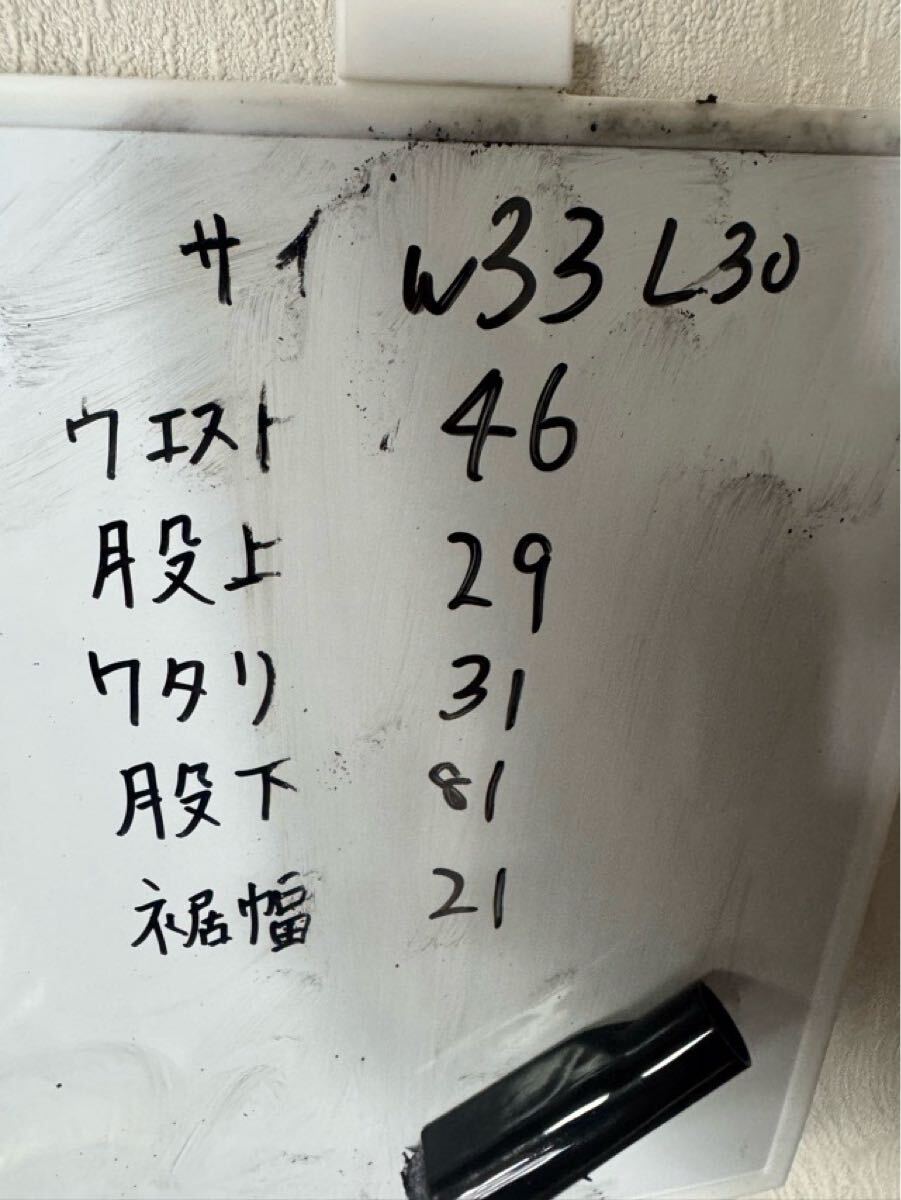 サイ W33 L30
ウエスト 46
股上 29
ワタリ 31
股下 81
裾幅 21